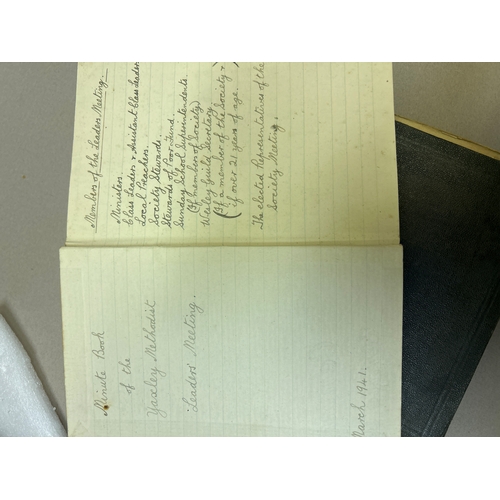 Members of the Leaders Meeting.
Ministers.
Class Leaders & Assistant Class Leaders
Local Preachers.
Society Stewards
Stewards of Poor Fund.
Sunday School Superintendents.
(If members of Society)
Wesley Guild Secretary.
(If a member of the Society &
if over 21 years of age.
The elected Representatives of the
Society Meeting.
Minute Book
of the
Yaxley Methodist
Leaders Meeting.
March 1941.